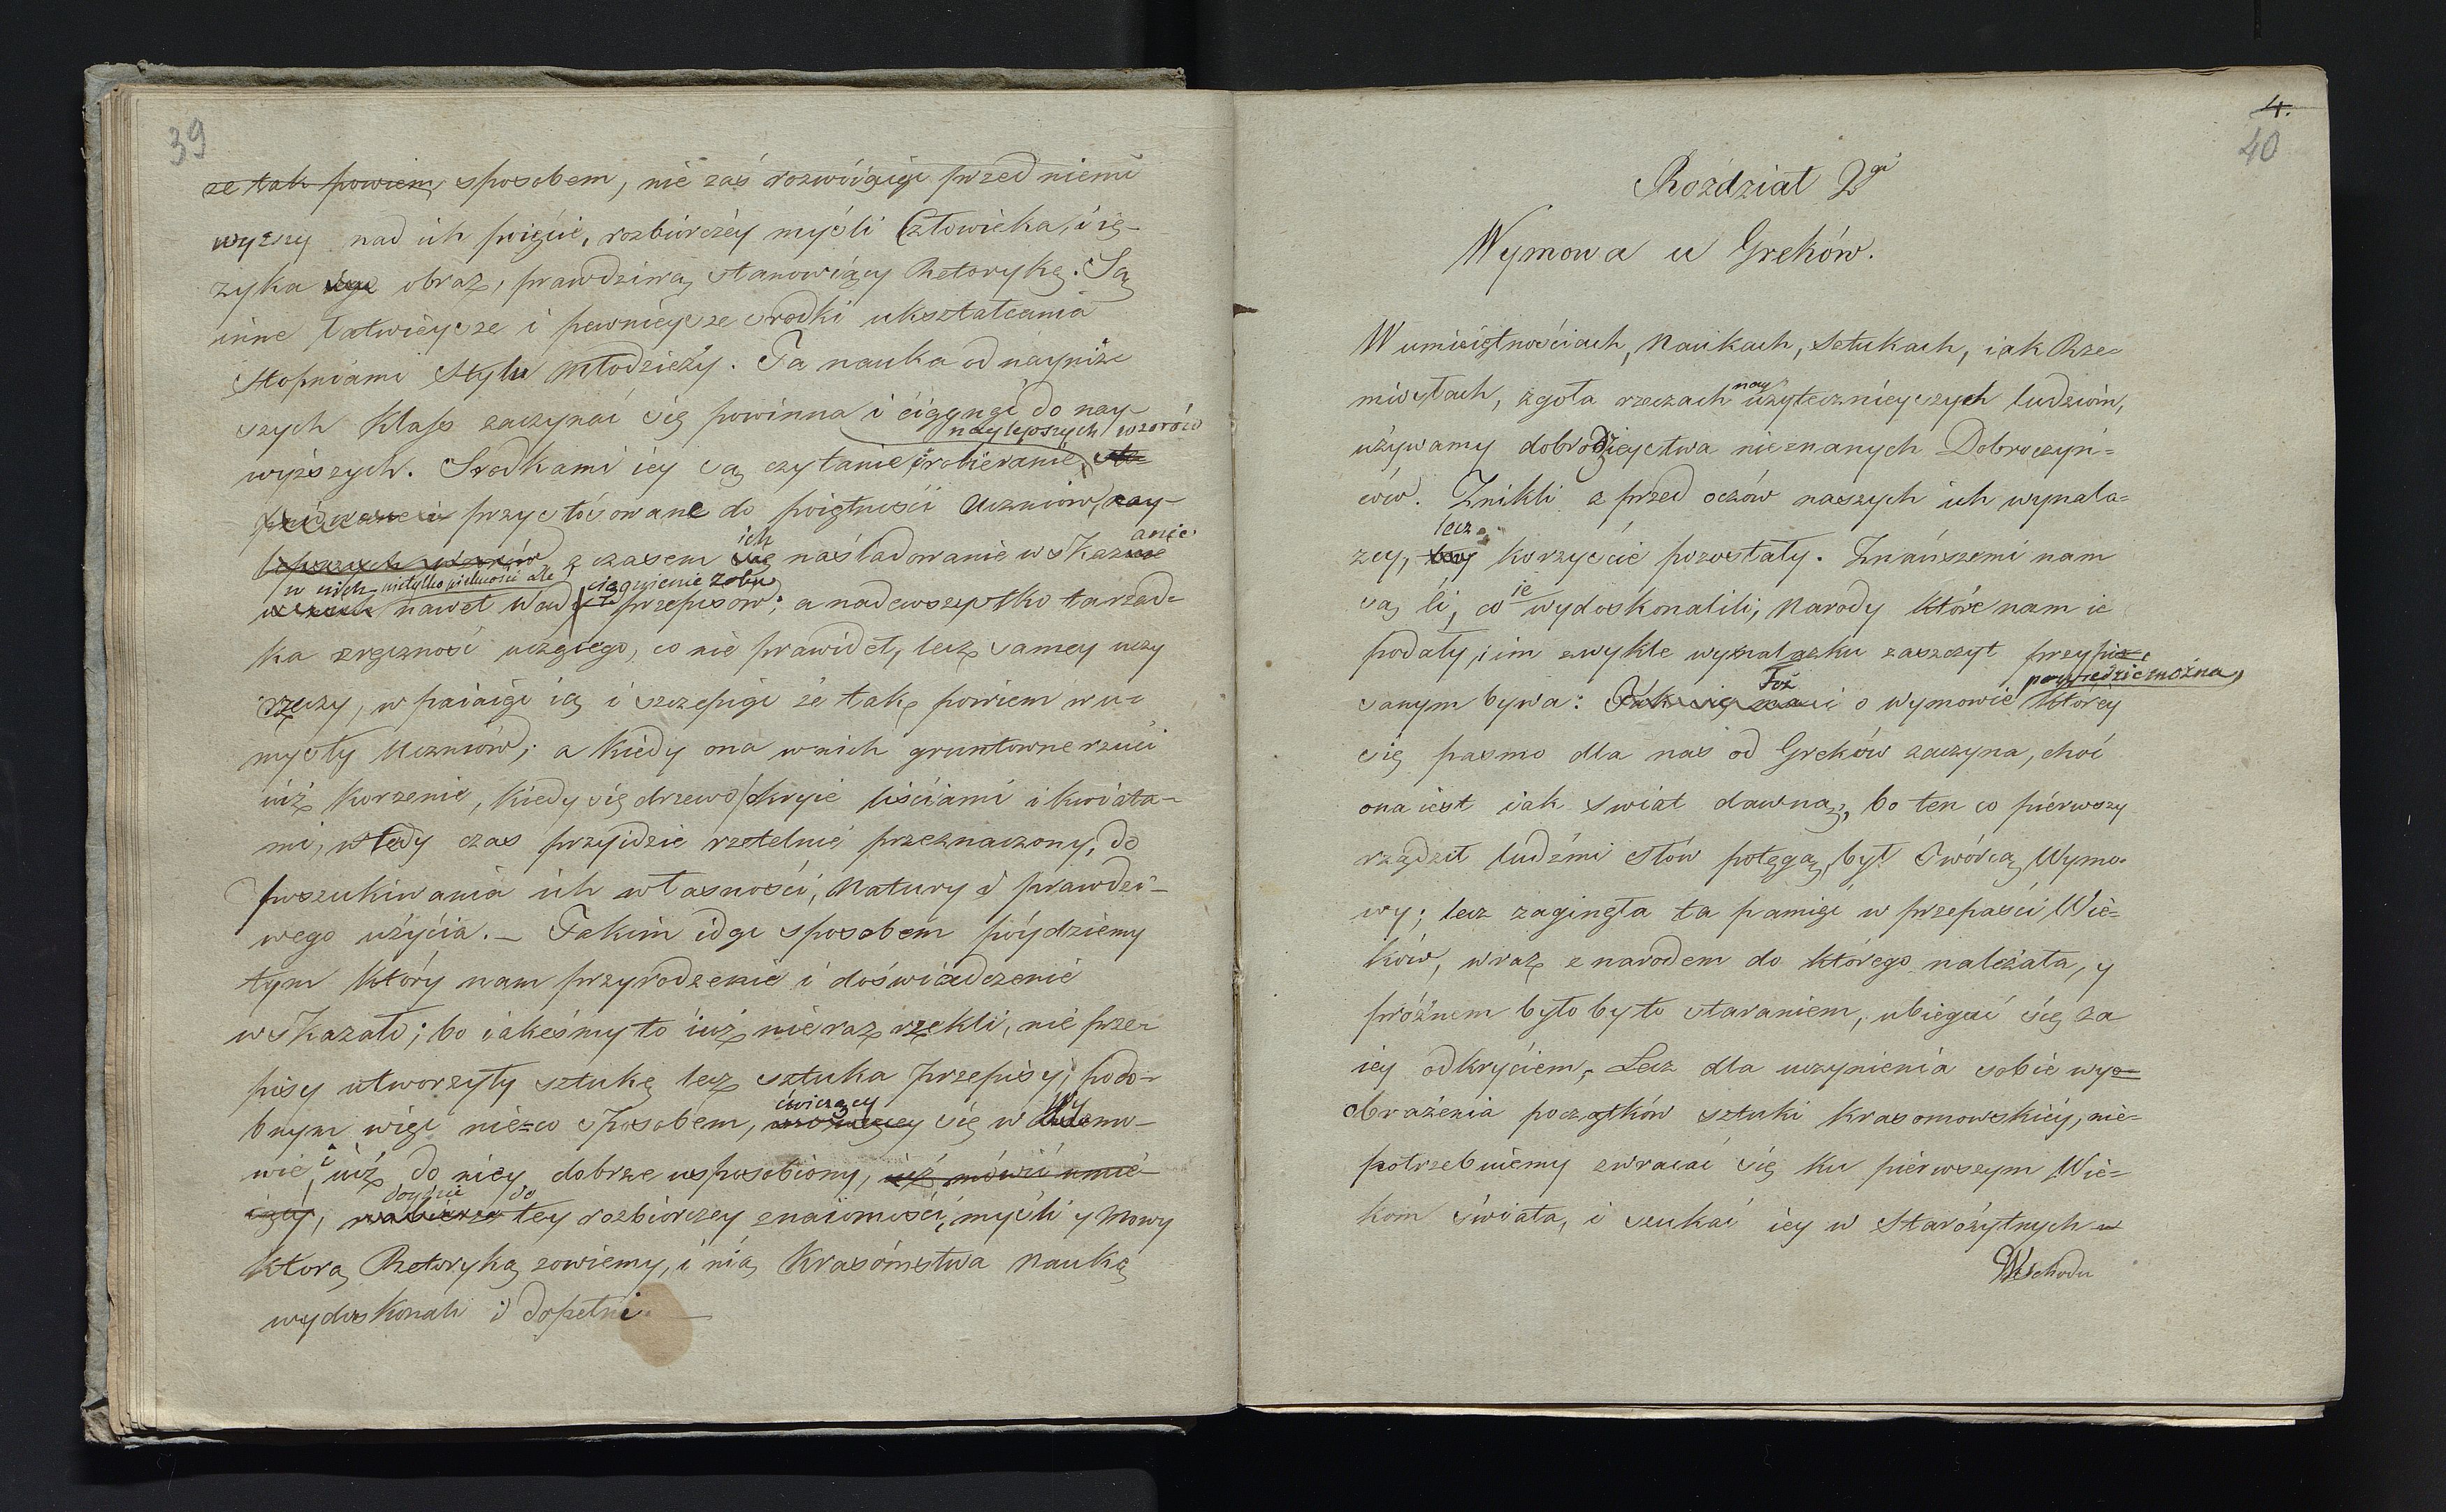 39
ze tak powiem, sposobem, nie zaś rozwiiaiąc przed niemi
wyższy nad ich poięcie, rozbiorczéy myśli Człowieka, i ię-
zyka obraz, prawdziwą stanowiący Retorykę. Są
inne łatwieysze i pewnieysze srodki ukształcania
stopniami stylu Młodzieży. Ta nauka od nayniż-
szych Klass zaczynać się powinna i ciągnąć do nay-
naylepszych wzorów
wyższych. Srodkami iey są czytanie i rozbieranie,
przystosowane do poiętności Uczniów, nay-
ich anie
lepszych wzorów, z czasem się naśladowanie wskaza
w nich nietylko piękności ale ciągnienie z obu
nawet wad przepisów; a nadewszystko ta rzad-
ka zręczność uczącego, co nie prawideł, lecz samey uczy
rzeczy, wpaiaiąc ią i szczepiąc że tak powiem w u-
mysły Uczniów; a kiedy ona w nich gruntowne rzuci
iuż korzenie, kiedy się drzewo okryie liściami i kwiata-
mi, wtedy czas przyidzie rzetelnie przeznaczony, do
poszukiwania ich własności, Natury i prawdzi-
wego użycia. — Takim idąc sposobem póydziemy
tym który nam przyrodzenie i doświadczenie
wskazało; bo iakeśmy to iuż nieraz rzekli, nie prze-
pisy utworzyły sztukę lecz sztuka przepisy; podo-
ćwiczący Wy
bnym więc nie-co sposobem, się w mo-
wie, i iuż do niey dobrze usposobiony, iuż mówić umie-
doydzie do
iący, tey rozbiorczey znaiomości, myśli y Mowy
ktorą Retoryką zowiemy, i nią Krasomstwa Naukę
wydoskonali i dopełni. —
4.
40
Rozdział 2gi
Wymowa u Greków.
W umieiętnościach, Naukach, Sztukach, iak Rze-
nay
miosłach, zgoła rzeczach użytecznieyszych ludziom,
używamy dobrodzieystwa nieznanych Dobroczyń-
ców. Znikli z przed oczów naszych ich wynala-
lecz
zcy, korzyście pozostały. Znańszemi nam
ie
są ci, co wydoskonalili, Narody które nam ie
podały, i im zwykle wynalazku zaszczyt przypi-
Toż powiedzieć można,
sanym bywa: Tak się ma i o wymowie którey
się pasmo dla nas od Greków zaczyna, choć
ona iest iak swiat dawną, bo ten co pierwszy
rządził ludźmi słów potęgą, był Twórcą Wymo-
wy; lecz zaginęła ta pamięć w przepaści Wie-
ków, wraz z narodem do którego należała, y
próżnem było by to staraniem, ubiegać się za
iey odkryciem, Lecz dla uczynienia sobie wyo-
brażenia początków sztuki krasomowskiéy, nie-
potrzebuiemy zwracać się ku pierwszym Wie-
kom świata, i szukać iey w Starożytnych
Wschodu